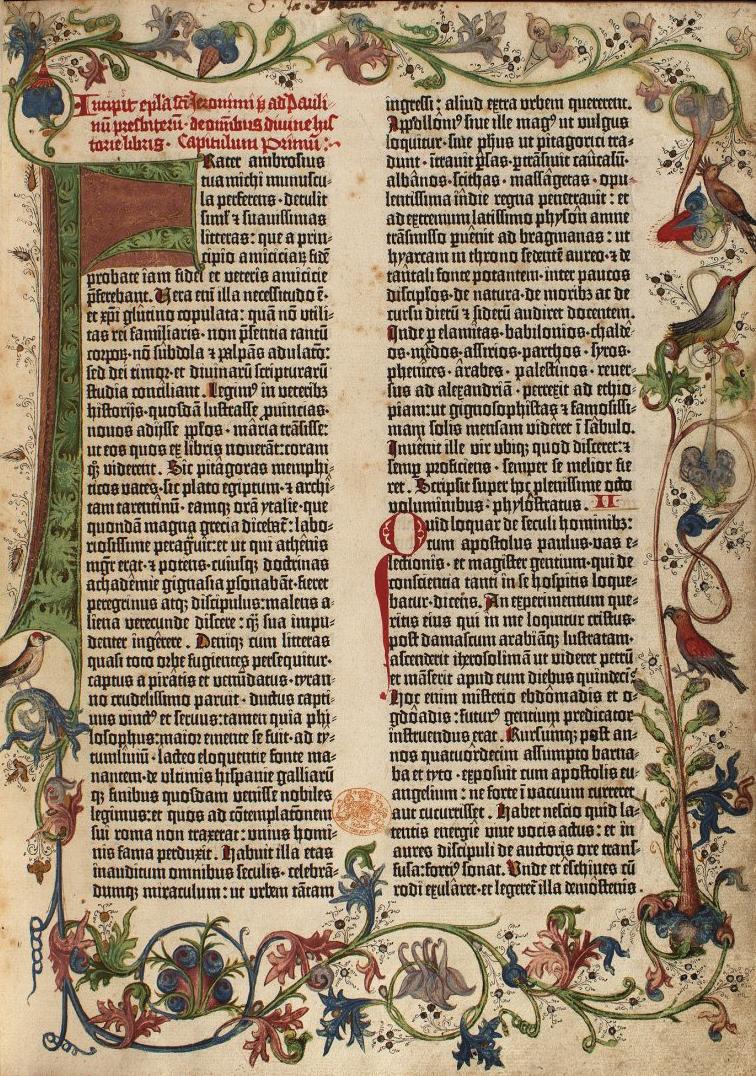 Incipit epl̃a sc̃i Jeronimi p̃ ad Pauli-
nũ presbiterũ · de om̃ibus divine his-
torie libris · Capitulum Primũ :
Frater ambrosius
tua michi munuscu-
la perferens · detulit
simĩ et suavissimas
litteras : que a prin-
cipio amiciciaꝝ fidẽ
probate iam fidei et veteris amicicie
p̃ferebant . Vera eni᷑ illa necessitudo ẽ ·
et xp̃i glutino copulata : quã nõ utili-
tas rei familiaris · non p̃sentia tantũ
corpoꝝ · nõ subdola et palpãs adulatõ :
sed dei timor · et divinarũ scripturarũ
studia conciliant . Legim⁹ in veteribꝫ
historijs · quosdã lustrasse ꝓvincias ·
novos adijsse pp̃los · maria trãsisse :
ut eos quos ex libris noverãt : coram
qꝫ viderent . Sic pitagoras memphi-
ticos vates · sic plato egiptum · et archi-
tam tarentinũ · eamqꝫ orã ytalie · que
quondã magna grecia dicebat᷑ : labo-
riosissime peragrvit : et ut qui athenis
mgr̃ erat · et potens · cuiusqꝫ doctrinas
achademie gignasia ꝑsonabãt · fieret
peregrinus atqꝫ discipulus : malens a-
liena verecunde discere : q̃ sua impu-
denter ingerere . Deniqꝫ cum litteras
quasi toto orbe fugientes persequitur ·
captus a piratis et venũdatus · tyran-
no crudelissimo paruit · ductus capti-
vus vinct⁹ et servus : tamen quia phi-
losophus : maior emente se fuit · ad ty-
tumliviũ · lacteo eloquentie fonte ma-
nantem · de ultimis hispanie galliarũ
qꝫ finibus quosdam venisse nobiles
legimus : et quos ad cõtemplatõnem
sui roma non traxerat : unius homi-
nis fama perduxit . Habuit illa etas
inauditum omnibus seculis · celebrã-
dumqꝫ miraculum : ut urbem tãtam
ingressi : aliud extra urbem quererent.
Apollõni⁹ sive ille mag⁹ ut vulgus
loquitur · sive ph̃us ut pitagorici tra-
dunt · ĩtravit p̃sas · ꝑtrãsivit caucasũ ·
albãnos · scithas · massagetas · opu-
lentissima ĩdie regna penetravit : et
ad extremum latissimo physõn amne
trãsmisso ꝑvenit ad bragmanas : ut
hyarcam in throno sedentẽ aureo · et de
tantali fonte potantem · inter paucos
discip̃los · de natura · de moribꝫ ac de
cursu dierũ et siderũ audiret docentem.
Inde ꝑ elamitas · babilonios · chalde-
os · medos · assirios · parthos · syros ·
phenices · arabes · palestinos · rever-
sus ad alexandriã · perrexit ad ethio-
piam : ut gignosophistas et famosissi-
mam solis mensam videret ĩ sabulo.
Invenit ille vir ubiqꝫ quod disceret : et
semꝑ proficiens · semper se melior fie-
ret . Scripsit super hoc plenissime octo
voluminibus · phylostratus . II
Quid loquar de seculi hominibꝫ :
cum apostolus paulus · vas e-
lectionis · et magister gentium · qui de
conscientia tanti in se hospitis loque-
batur · dicens . An experimentum que-
ritis eius qui in me loquitur cristus.
post damascum arabiãqꝫ lustratam ·
ascenderit iherosolimã ut videret petrũ
et mãserit apud eum diebus quindeci᷑.
Hoc enim misterio ebdõmadis et o-
gdõadis : futur⁹ gentium predicator
instruendus erat . Rursumqꝫ post an-
nos quatuõrdecim assumpto barna-
ba et tyto · exposuit cum apostolis eu-
angelium : ne forte ĩ vacuum curreret
aut cucurrisset . Habet nescio quid la-
tentis energie vive vocis actus : et in
aures discipuli de auctoris ore trans-
fusa : forti⁹ sonat . Unde et ẽschines cũ
rodi exularet · et legeret᷑ illa demostenis .